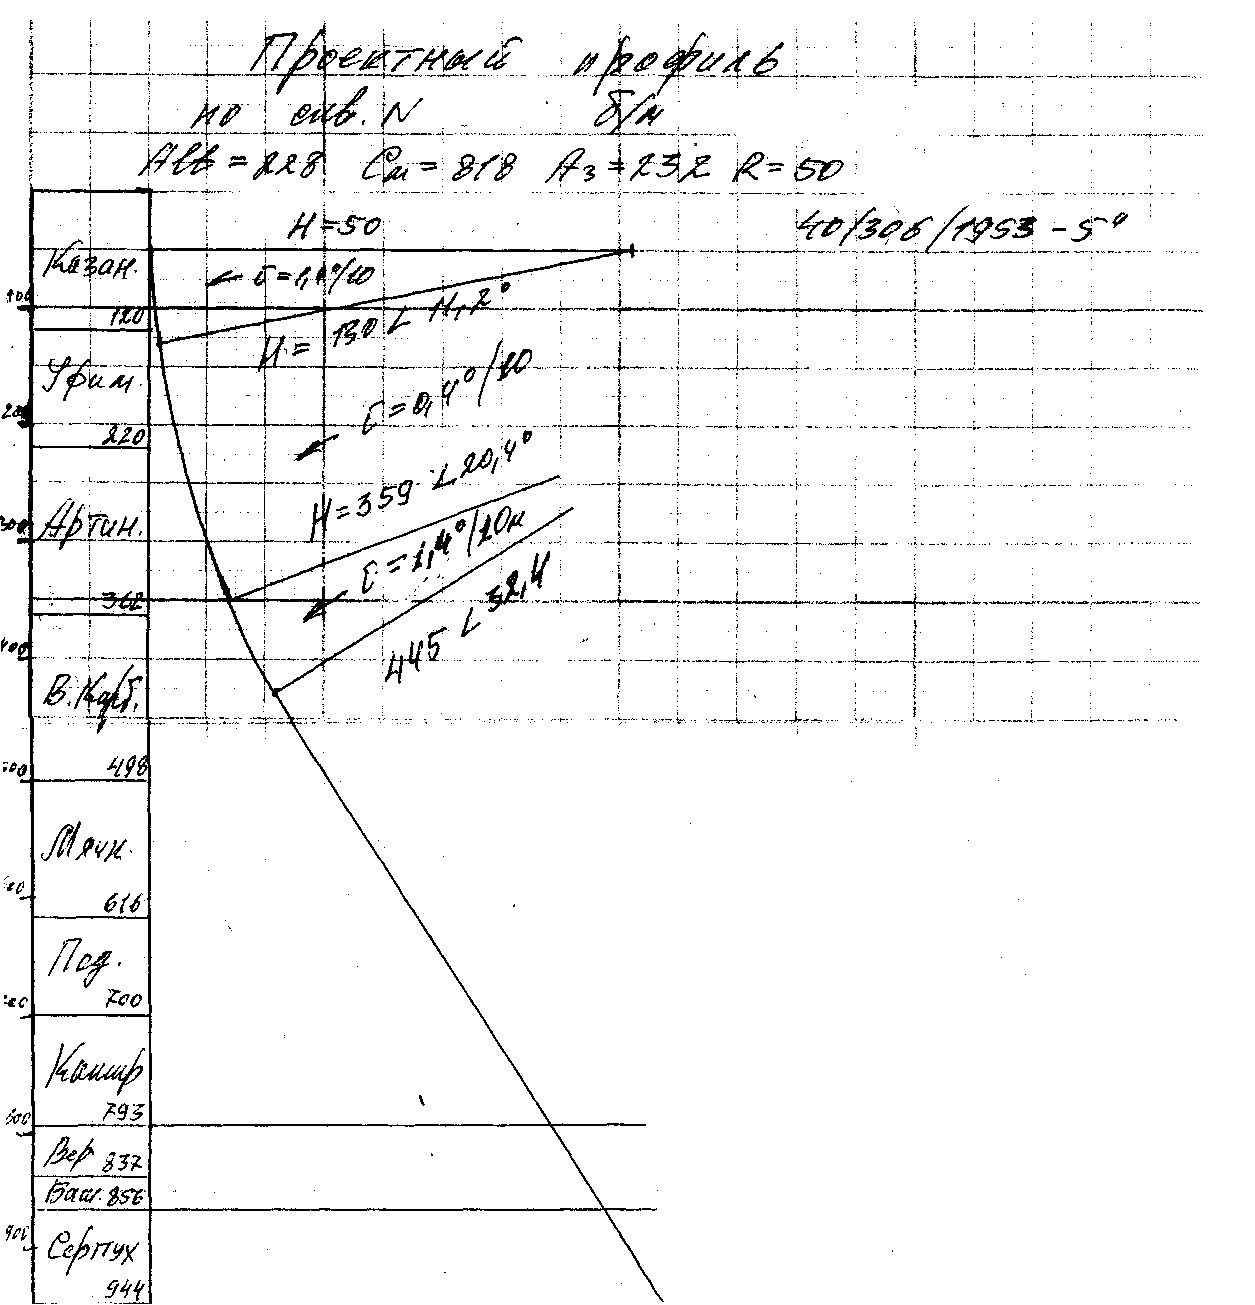 Проектный профиль
по скв. N б/н
Alb = 228 См = 818 Аз = 232 R = 50
H = 50
40/306/1953 - 5"
Казан.
100
120
H = 130 L 11,2°
Уфим.
200
220
б = 0,4°/10
H = 359 L 20,4°
300
Артин.
362
б = 1,4°/10м
445 L 32,4
400
В. Карб.
498
500
Мячк.
616
Под.
700
Кашир
793
800
Вер 837
Баш. 856
900
Серпух
944